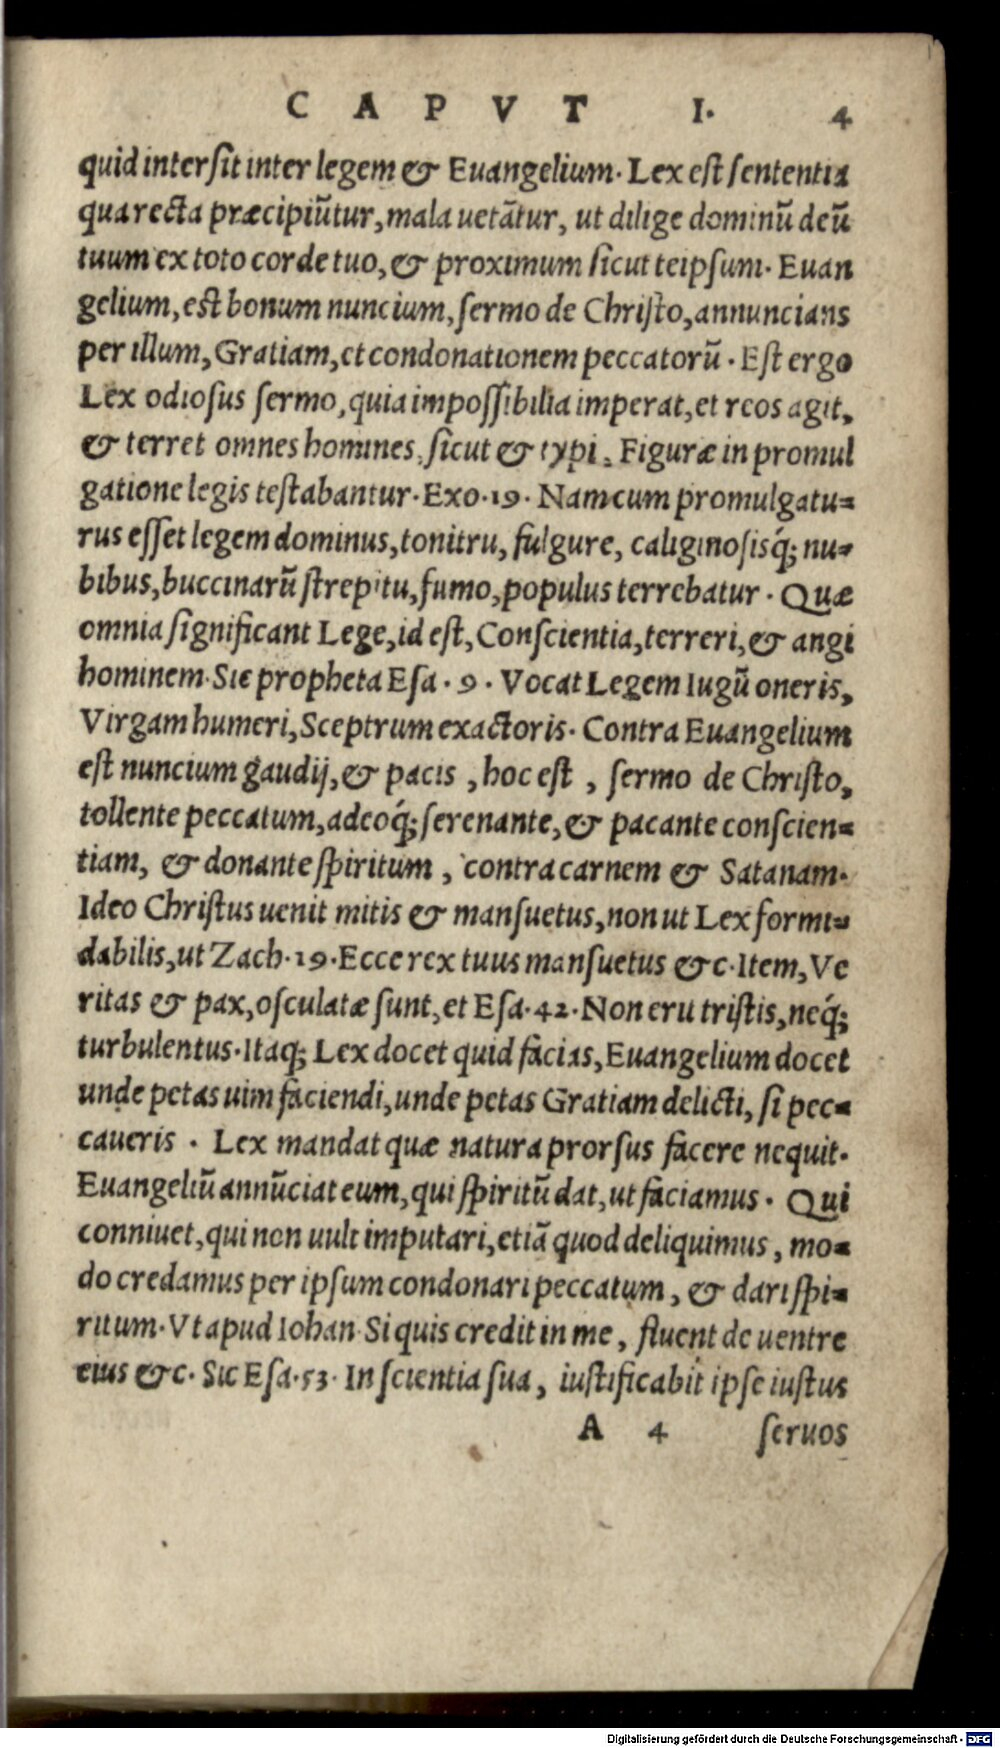 CAPVT I. 4
quid intersit inter legem & Euangelium. Lex est sententia
qua recta præcipiũtur, mala uetãtur, ut dilige dominũ deũ
tuum ex toto corde tuo, & proximum sicut teipsum. Euan
gelium, est bonum nuncium, sermo de Christo, annuncians
per illum, Gratiam, et condonationem peccatorũ. Est ergo
Lex odiosus sermo, quia impossibilia imperat, et reos agit,
& terret omnes homines, sicut & typi, Figuræ in promul
gatione legis testabantur. Exo. 19. Nam cum promulgatu-
rus esset legem dominus, tonitru, fulgure, caliginosisq́; nu-
bibus, buccinarũ strepitu, fumo, populus terrebatur. Quæ
omnia significant Lege, id est, Conscientia, terreri, & angi
hominem. Sic propheta Esa. 9. Vocat Legem Iugũ oneris,
Virgam humeri, Sceptrum exactoris. Contra Euangelium
est nuncium gaudij, & pacis, hoc est, sermo de Christo,
tollente peccatum, adeoq́; serenante, & pacante conscien-
tiam, & donante spiritum, contra carnem & Satanam.
Ideo Christus uenit mitis & mansuetus, non ut Lex formi-
dabilis, ut Zach. 19. Ecce rex tuus mansuetus &c. Item, Ve
ritas & pax, osculatæ sunt, et Esa. 42. Non eru tristis, neq́;
turbulentus. Itaq; Lex docet quid facias, Euangelium docet
unde petas uim faciendi, unde petas Gratiam delicti, si pec-
caueris. Lex mandat quæ natura prorsus facere nequit.
Euangeliũ annũciat eum, qui spiritũ dat, ut faciamus. Qui
conniuet, qui non uult imputari, etiã quod deliquimus, mo-
do credamus per ipsum condonari peccatum, & dari spi-
ritum. Vt apud Iohan. Si quis credit in me, fluent de uentre
eius &c. Sic Esa. 53. In scientia sua, iustificabit ipse iustus
A 4 seruos
Digitalisierung gefördert durch die Deutsche Forschungsgemeinschaft - DFG